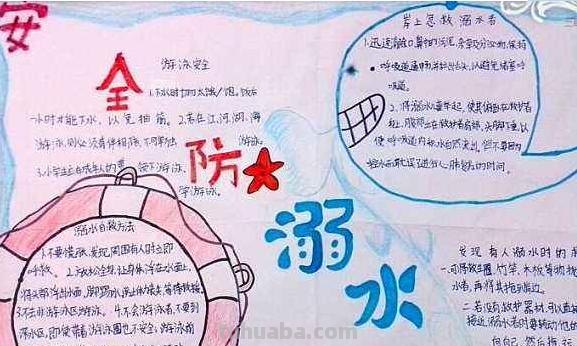 安
全
防
溺
水
游泳安全
1.下水时切勿太饿/饱,饭后
小时才能下水,以免抽筋。2.若在江,河,湖,海
游泳,则必须有伴相陪,不可单独游泳。
3.小学生应在成年人的带领下游泳,
学游泳。
岸上急救溺水者
1.迅速清除口鼻中的污泥,杂草及分泌物,保持
呼吸道通畅,并拉出舌头,以避免堵塞呼
吸道。
2.将溺水儿童举起,使其俯卧在救护者
肩上,腹部紧贴救护者肩部,头脚下垂,以
使呼吸道内积水自然流出,但不要因为
控水而耽误进行心肺复苏的时间。
溺水自救方法
1.不要慌张,发现周围有人时立即
呼救。2.放松全身,让身体浮在水面上,
将头部浮出水面,脚踢水,防止体力丧失,等待救援
3.不在非游泳区游泳。4.不会游泳者,不要到
深水区,即使带着游泳圈也不安全;游泳前
发现有人溺水时的
一.可将救生圈、竹竿、木板等物抛
水者,再将其拖至岸边。
二.若没有救护器材,可以入水直
接近溺水者时要转动他的
tuhuaba.com